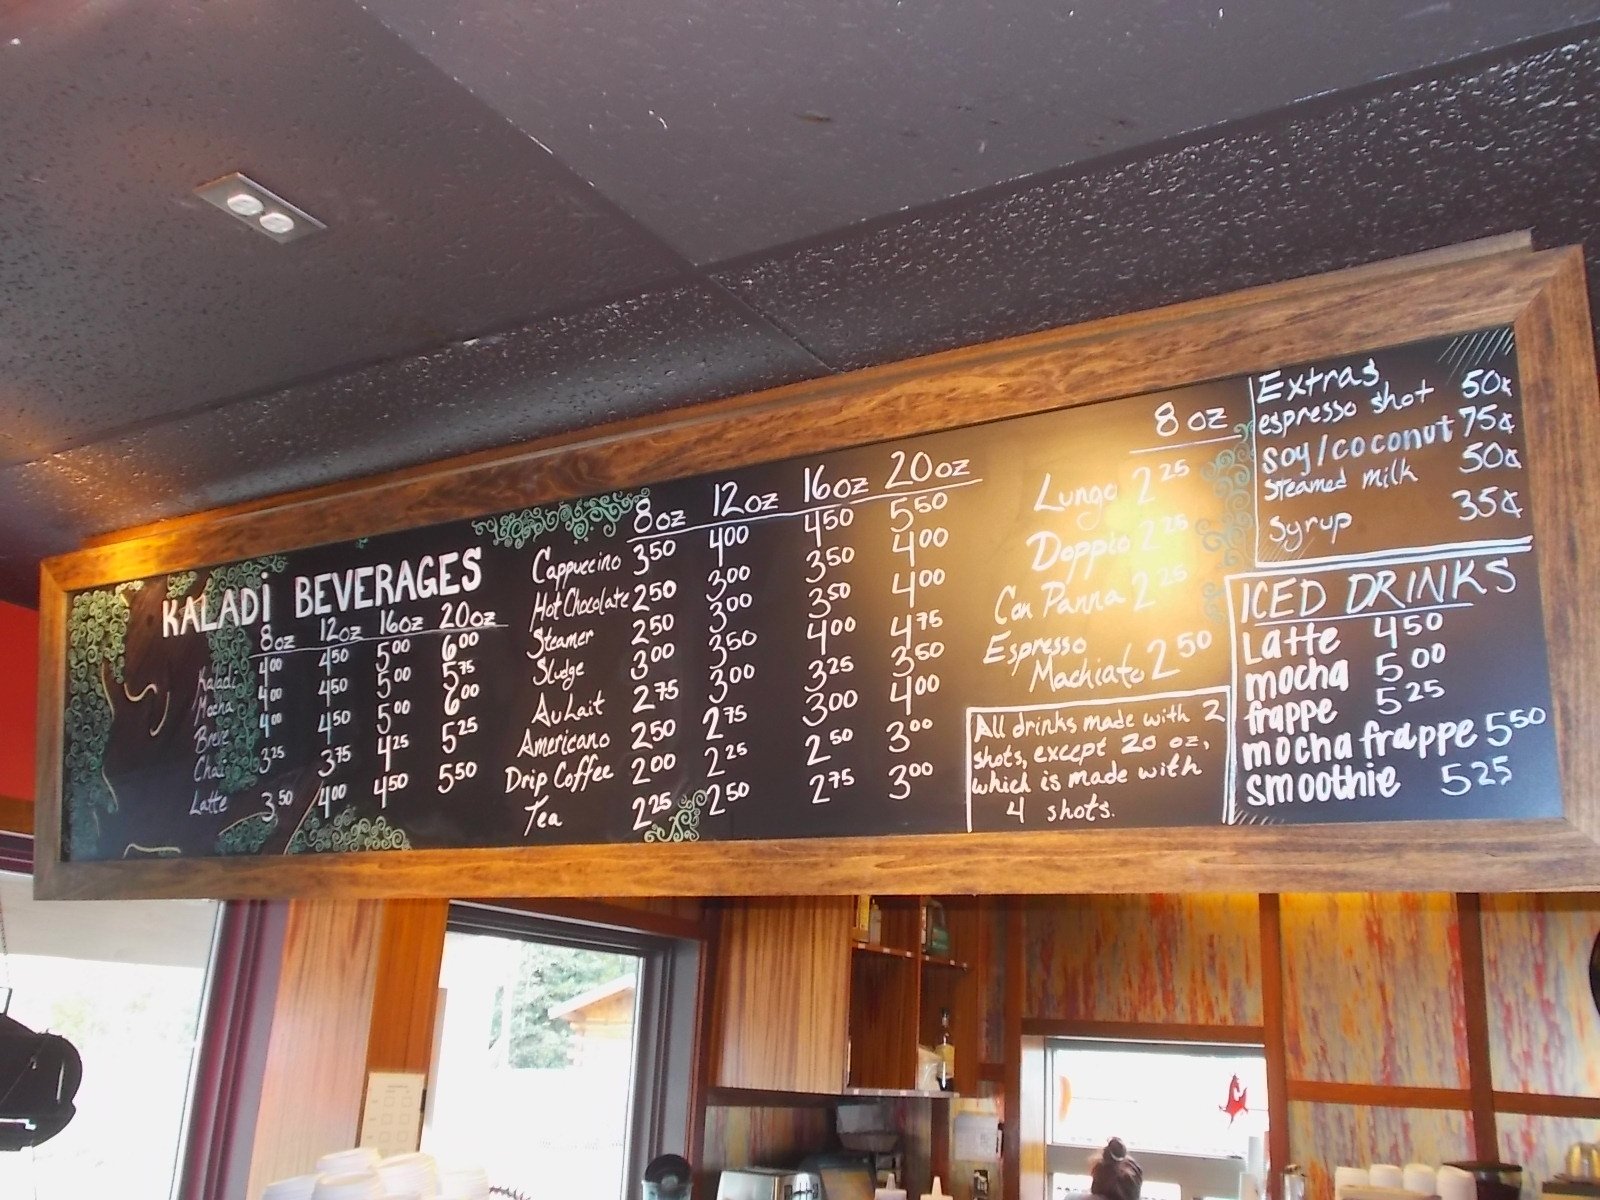 KALADi BEVERAGES
8oz 12oz 16oz 20oz
Kaladi 4.00 4.50 5.00 6.00
Mocha 4.00 4.50 5.00 5.75
Breve 4.00 4.50 5.00 6.00
Chai 3.25 3.75 4.25 5.25
Latte 3.50 4.00 4.50 5.50
8oz 12oz 16oz 20oz
Cappuccino 3.50 4.00 4.50 5.50
Hot Chocolate 2.50 3.00 3.50 4.00
Steamer 2.50 3.00 3.50 4.00
Sludge 3.00 3.50 4.00 4.75
Au Lait 2.75 3.00 3.25 3.50
Americano 2.50 2.75 3.00 4.00
Drip Coffee 2.00 2.25 2.50 3.00
Tea 2.25 2.50 2.75 3.00
8 oz
Lungo 2.25
Doppio 2.25
Con Panna 2.25
Espresso
Machiato 2.50
All drinks made with 2
shots, except 20 oz,
which is made with
4 shots.
Extras
espresso shot 50¢
soy/coconut 75¢
Steamed milk 50¢
Syrup 35¢
ICED DRINKS
Latte 4.50
mocha 5.00
frappe 5.25
mocha frappe 5.50
smoothie 5.25